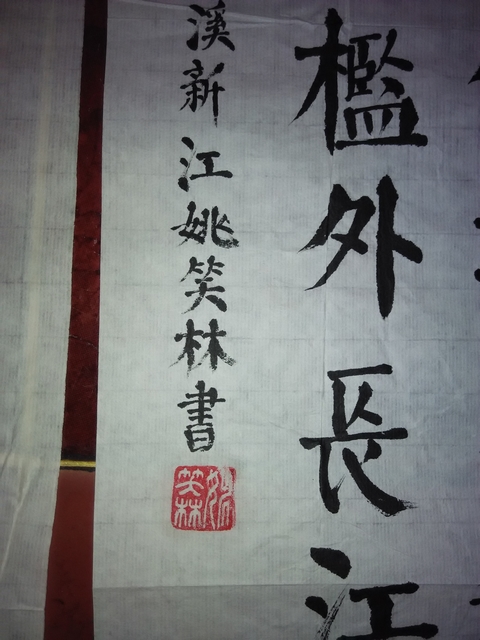 檻外長江
溪新江姚笑林書
姚笑林